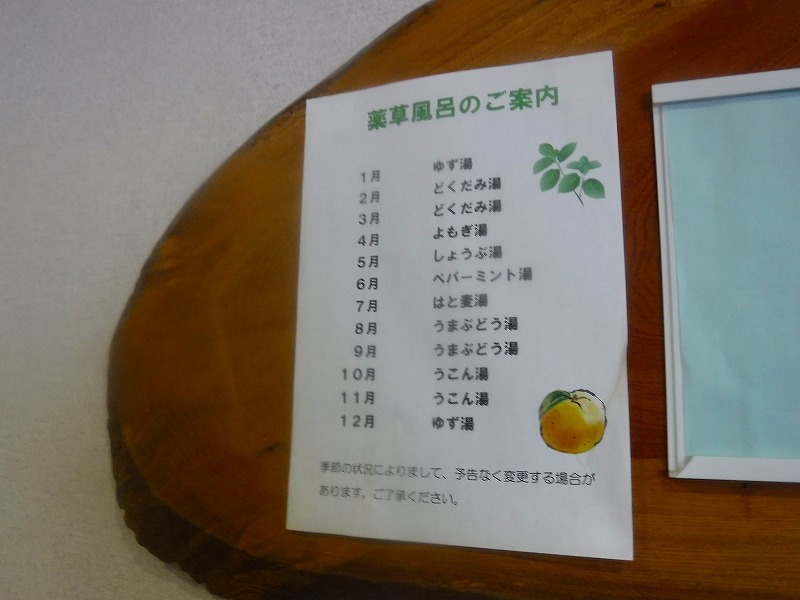 薬草風呂のご案内
1月 ゆず湯
2月 どくだみ湯
3月 どくだみ湯
4月 よもぎ湯
5月 しょうぶ湯
6月 ペパーミント湯
7月 はと麦湯
8月 うまぶどう湯
9月 うまぶどう湯
10月 うこん湯
11月 うこん湯
12月 ゆず湯
季節の状況によりまして、予告なく変更する場合が
あります。ご了承ください。